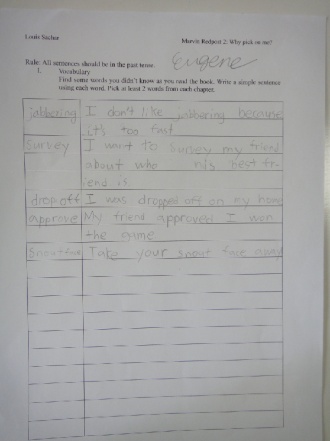 Louis Sachar Marvin Redpost 2: Why pick on me?
Eugene
Rule: All sentences should be in the past tense.
1. Vocabulary
Find some words you didn't know as you read the book. Write a simple sentence
using each word. Pick at least 2 words from each chapter.
jabbering I don't like jabbering because
it's too fast
Survey I want to survey my friend
about who his best fr-
iend is
drop off I was dropped off on my home
approve My friend approved I won
the game
Take your snout face away